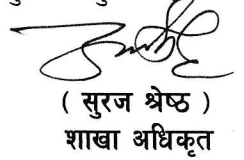 ( सुरज श्रेष्ठ )
शाखा अधिकृत